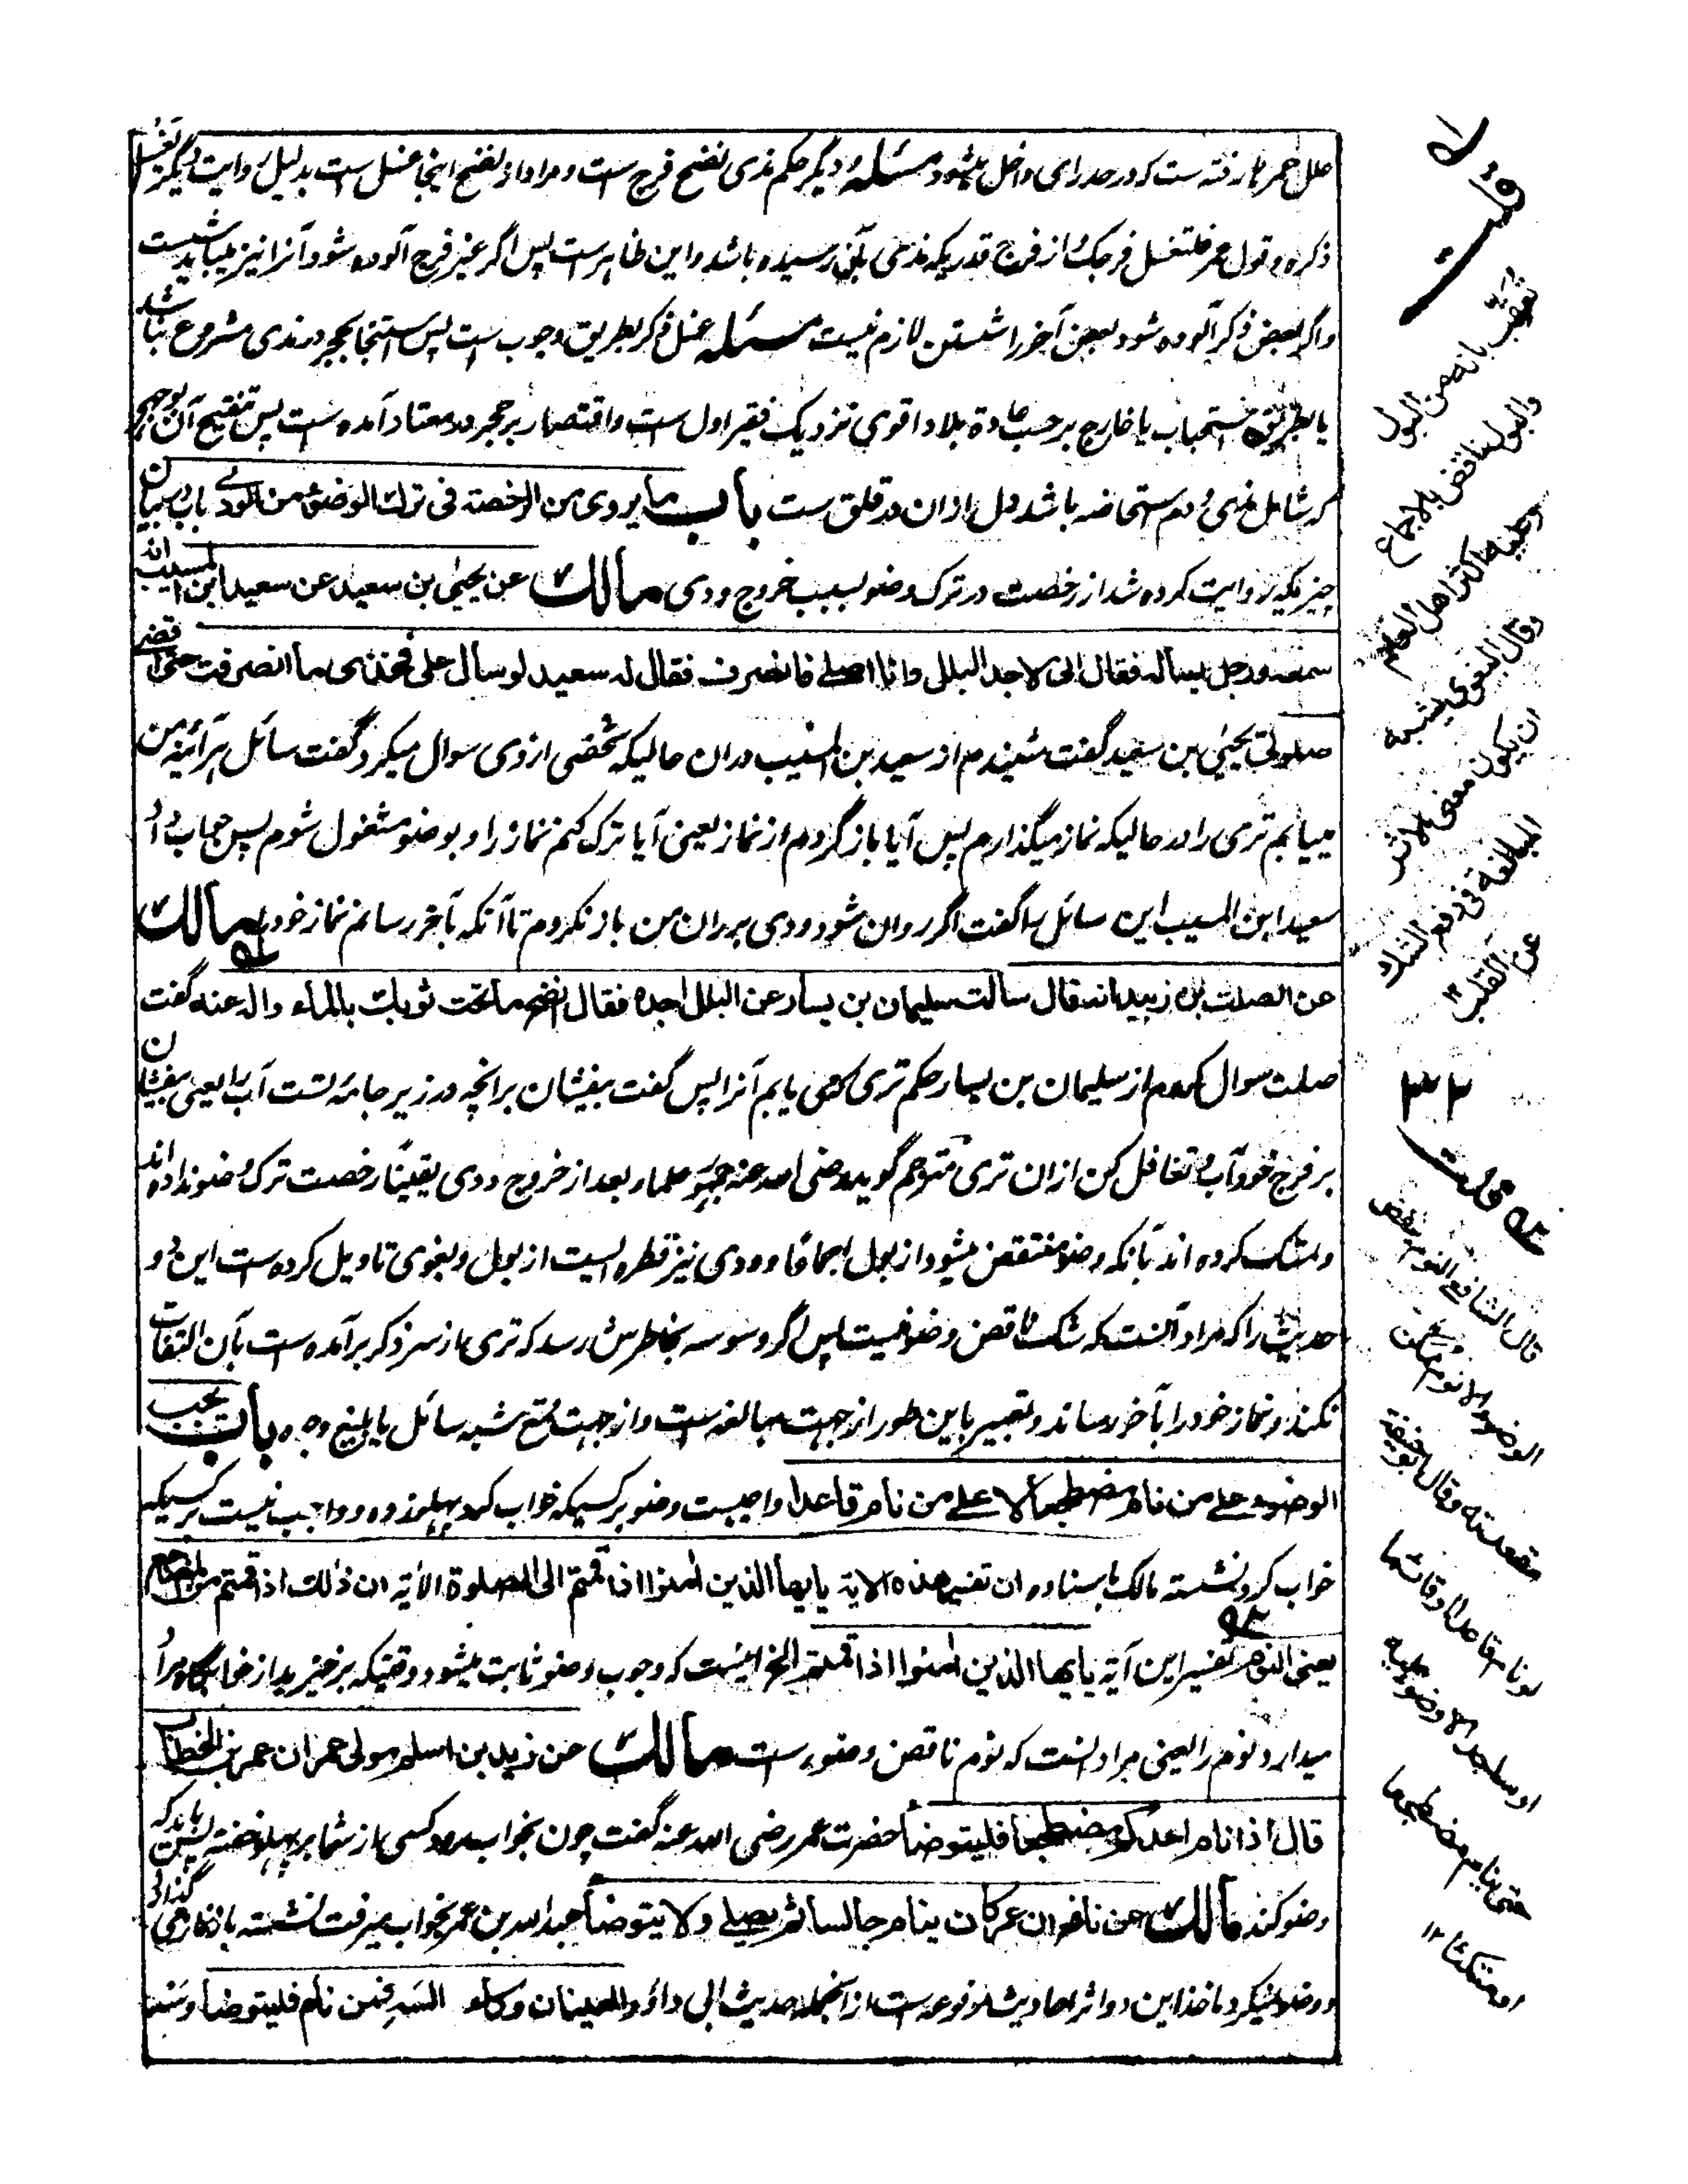 علل حمر ها رفته ست که در حد رای داخل میشود مسئله و دیگر حکم مذی نضح فرج ست و مراد از نضح اینجا غسل ست بدلیل روایت دیگر تغسل
ذکره و قول عمر فلتغسل فرجک از فرج قدریکه مذی بآن رسیده باشد و این ظاهر ست پس اگر غیر فرج آلوده شود آنرا نیز میباید شست
و اگر بعض ذکر آلوده شود بعض آخر را شستن لازم نیست مسئله غسل ذکر بطریق وجوب ست پس استنجا بحجر در مذی مشروع نباشد
یا بطریق استحباب یا خارج بر حسب عادة بلاد اقوی نزدیک فقیر اول ست و اقتصار بر حجر در معتاد آمده ست پس تنقیح آن بوجهی
که شامل مذی و دم استحاضه باشد دل ازان در قلق ست باب ما یروی من الرخصة فی ترک الوضوء من الودی باب در بیان
چیزیکه روایت کرده شد از رخصت در ترک وضو بسبب خروج ودی مالک عن یحیی بن سعید عن سعید ابن المسیب انه
سمعه و رجل یساله فقال انی لاجد البلل وانا اصلی فانصرف فقال له سعید لو سال علی فخذی ما انصرفت حتی اقضی
صلوتی یحیی بن سعید گفت شنیدم از سعید بن المسیب دران حالیکه شخصی از وی سوال میکرد گفت سائل هرآئینه من
مییابم تری را در حالیکه نماز میگذارم پس آیا باز گردم از نماز یعنی آیا ترک کنم نماز را و بوضو مشغول شوم پس جواب داد
سعید ابن المسیب این سائل را گفت اگر روان شود ودی بر ران من باز نگردم تا آنکه بآخر رسانم نماز خود را مالک
عن الصلت بن زبید انه قال سالت سلیمان بن یسار عن البلل اجده فقال انضح ما تحت ثوبک بالماء واله عنه گفت
صلت سوال کردم از سلیمان بن یسار حکم تری که می یابم آنرا پس گفت بیفشان برانچه در زیر جامه تست آب را یعنی بیفشان
بر فرج خود آب و تغافل کن ازان تری مترجم گوید رضی الله عنه جمهور علماء بعد از خروج ودی یقینا رخصت ترک وضو نداده اند
و تمسک کرده اند بآنکه وضو منتقض میشود از بول اجماعا و ودی نیز قطره ایست از بول و بغوی تاویل کرده ست این دو
حدیث را که مراد آنست که شک ناقض وضو نیست پس اگر وسوسه بخاطرش رسد که تری از سر ذکر برآمده ست بآن التفات
نکند و نماز خود را بآخر رساند و تعبیر باین طور از جهت مبالغه ست و از جهت منع شبه سائل بابلغ وجوه باب یجب
الوضوء علی من نام مضطجعا لا علی من نام قاعدا واجبست وضو بر کسیکه خواب کرد پهلو زده و واجب نیست بر کسیکه
خواب کرد نشسته مالک باسناده ان تفسیر هذه الایة یا یها الذین امنوا اذا قمتم الی الصلوة الایة ان ذلک اذا قمتم من المضاجع
یعنی النوم تفسیر این آیة یا یها الذین امنوا اذا قمتم الخ اینست که وجوب وضو ثابت میشود وقتیکه برخیزید از خوابگاه مراد
میدارد نوم را یعنی مراد اینست که نوم ناقض وضوء ست مالک عن زید بن اسلم مولی عمر ان عمر بن الخطاب
قال اذا نام احدکم مضطجعا فلیتوضأ حضرت عمر رضی الله عنه گفت چون بخواب رود کسی از شما بر پهلو خفته پس باید که
وضو کند مالک عن نافع ان ابن عمر کان ینام جالسا ثم یصلی ولا یتوضأ عبد الله بن عمر بخواب میرفت نشسته باز نماز می گذارد
و وضو نمیکرد ماخذ این دو اثر احادیث مرفوعه ست از انجمله حدیث ابی داؤد العینان وکاء السه فمن نام فلیتوضأ
قوله
قلت
تعقب بانه من البول
والبول ناقض بالاجماع
وعلیه اکثر اهل العلم
وقال البغوی یشبه
ان یکون معنی الاثر
المبالغة فی دفع الشک
عن القلب ۱۲
قلت
قال الشافعی النوم ینقض
الوضوء الا نوم ممکن
مقعدته وقال ابو حنیفة
لو نام قاعدا او قائما
او ساجدا لا وضوء علیه
حتی ینام مضطجعا
او متکئا ۱۲